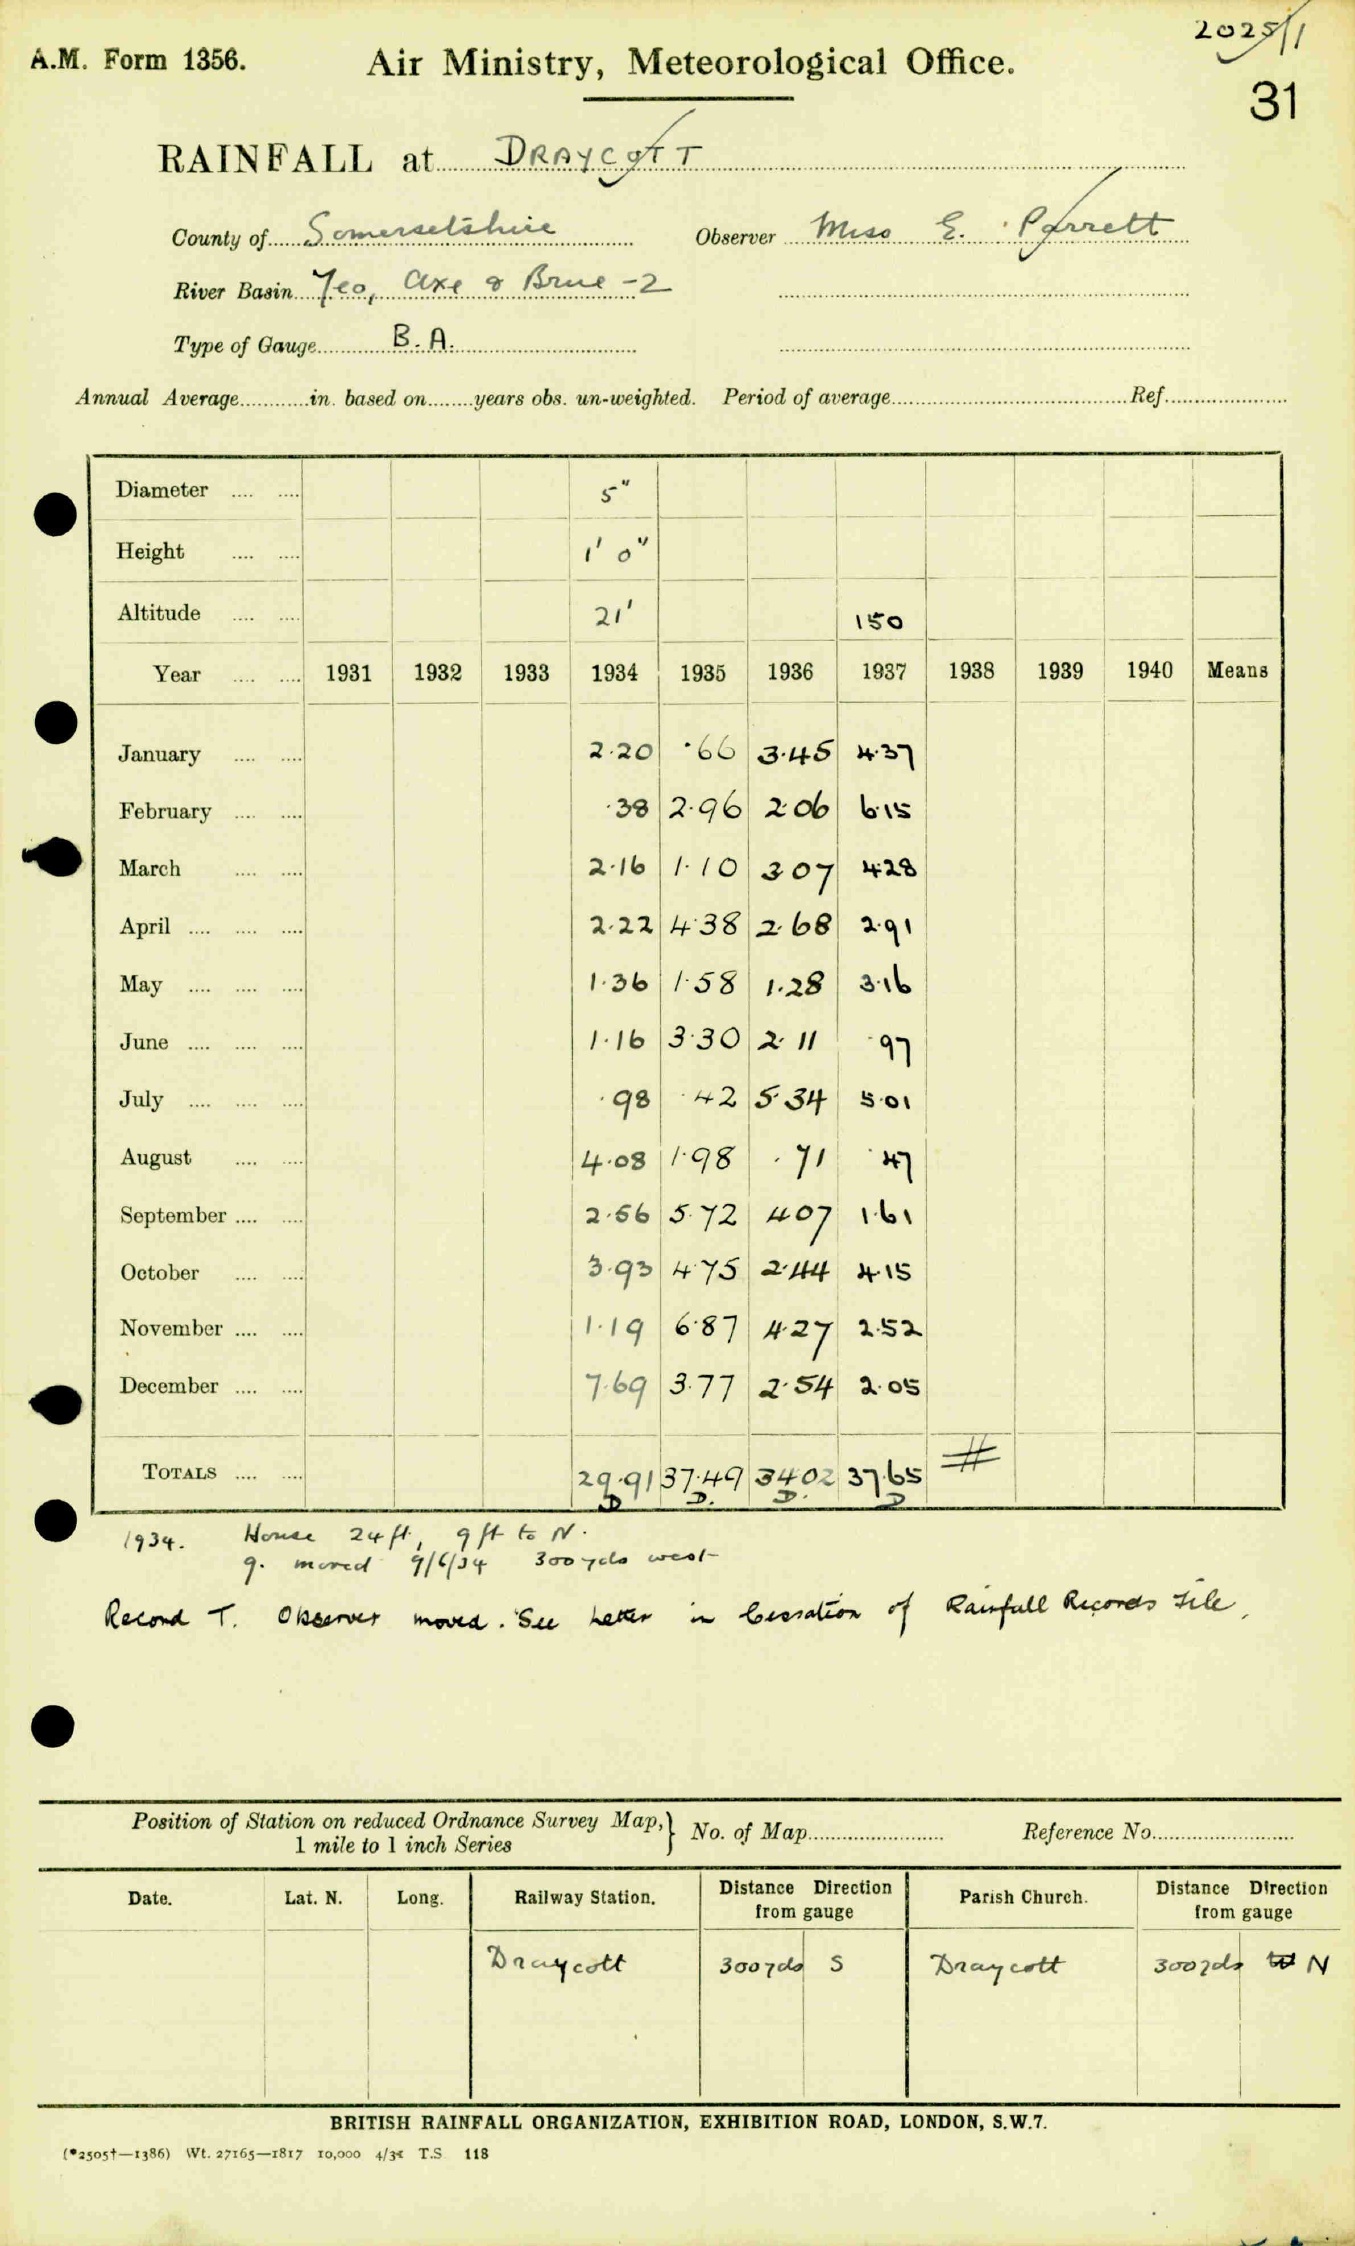 2025/1
A.M. Form 1356. Air Ministry, Meteorological Office.
31
RAINFALL at DRAYCOTT
County of Somersetshire Observer Miss E. Parrett
River Basin Yeo, Axe & Brue -2
Type of Gauge B.A.
Annual Average............in. based on........years obs. un-weighted. Period of average............ Ref............
Diameter .... .... 5"
Height .... .... 1' 0"
Altitude .... .... 21' 150
Year .... .... 1931 1932 1933 1934 1935 1936 1937 1938 1939 1940 Means
January .... .... 2.20 .66 3.45 4.37
February .... .... .38 2.96 2.06 6.15
March .... .... 2.16 1.10 3.07 4.28
April .... .... .... 2.22 4.38 2.68 2.91
May .... .... .... 1.36 1.58 1.28 3.16
June .... .... .... 1.16 3.30 2.11 .97
July .... .... .... .98 .42 5.34 5.01
August .... .... 4.08 1.98 .71 .47
September .... .... 2.56 5.72 4.07 1.61
October .... .... 3.93 4.75 2.44 4.15
November .... .... 1.19 6.87 4.27 2.52
December .... .... 7.69 3.77 2.54 2.05
TOTALS .... .... 29.91 37.49 34.02 37.65
D D. D. D
1934. House 24 ft, 9 ft to N.
g. moved 9/6/34 300 yds west
Record T. Observer moved. See Letter in Cessation of Rainfall Records File.
Position of Station on reduced Ordnance Survey Map,} No. of Map............ Reference No............
1 mile to 1 inch Series
Date. Lat. N. Long. Railway Station. Distance Direction from gauge Parish Church. Distance Direction from gauge
Draycott 300 yds S Draycott 300 yds N
BRITISH RAINFALL ORGANIZATION, EXHIBITION ROAD, LONDON, S.W.7.
(*2505†—1386) Wt. 27165—1817 10,000 T.S 118